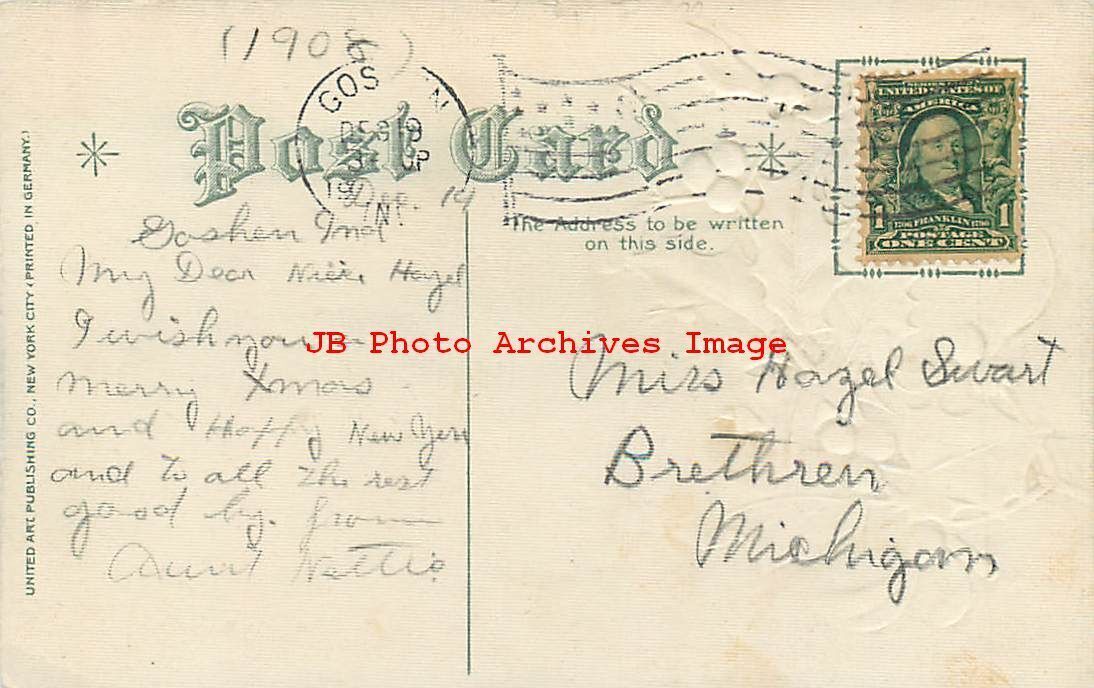 (190 )
GOS N
DEC 19
IN
Post Card
The Address to be written
on this side.
UNITED STATES OF
AMERICA
1 FRANKLIN 1
POSTAGE
ONE CENT
UNITED ART PUBLISHING CO., NEW YORK CITY (PRINTED IN GERMANY.)
Dec. 19
Goshen Ind
My Dear Niece Hazel
I wish you
merry Xmas
and Happy New Year
and to all the rest
good by. from
Aunt Nettie
JB Photo Archives Image
Miss Hazel Swart
Brethren
Michigan